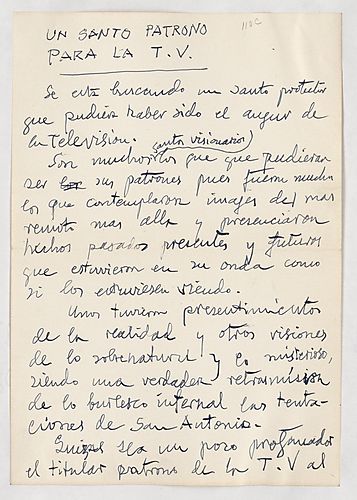 UN SANTO PATRONO
PARA LA T. V.
Se está buscando un santo protector
que pudiera haber sido el augur de
la Television.
(santos visionarios)
Son muchos los que que pudieran
ser sus patrones pues fueron muchos
los que contemplaron images del mas
remoto mas alla y presenciaron
hechos pasados presentes y futuros
que estuvieron en su onda como
si los estuviesen viendo.
Unos tuvieron presentimientos
de la realidad y otros visiones
de lo sobrenatural y lo misterioso,
siendo una verdadera retransmision
de lo burlesco infernal las tenta-
ciones de San Antonio.
Quizas sea un poco profanador
el titular patrono de la T. V al